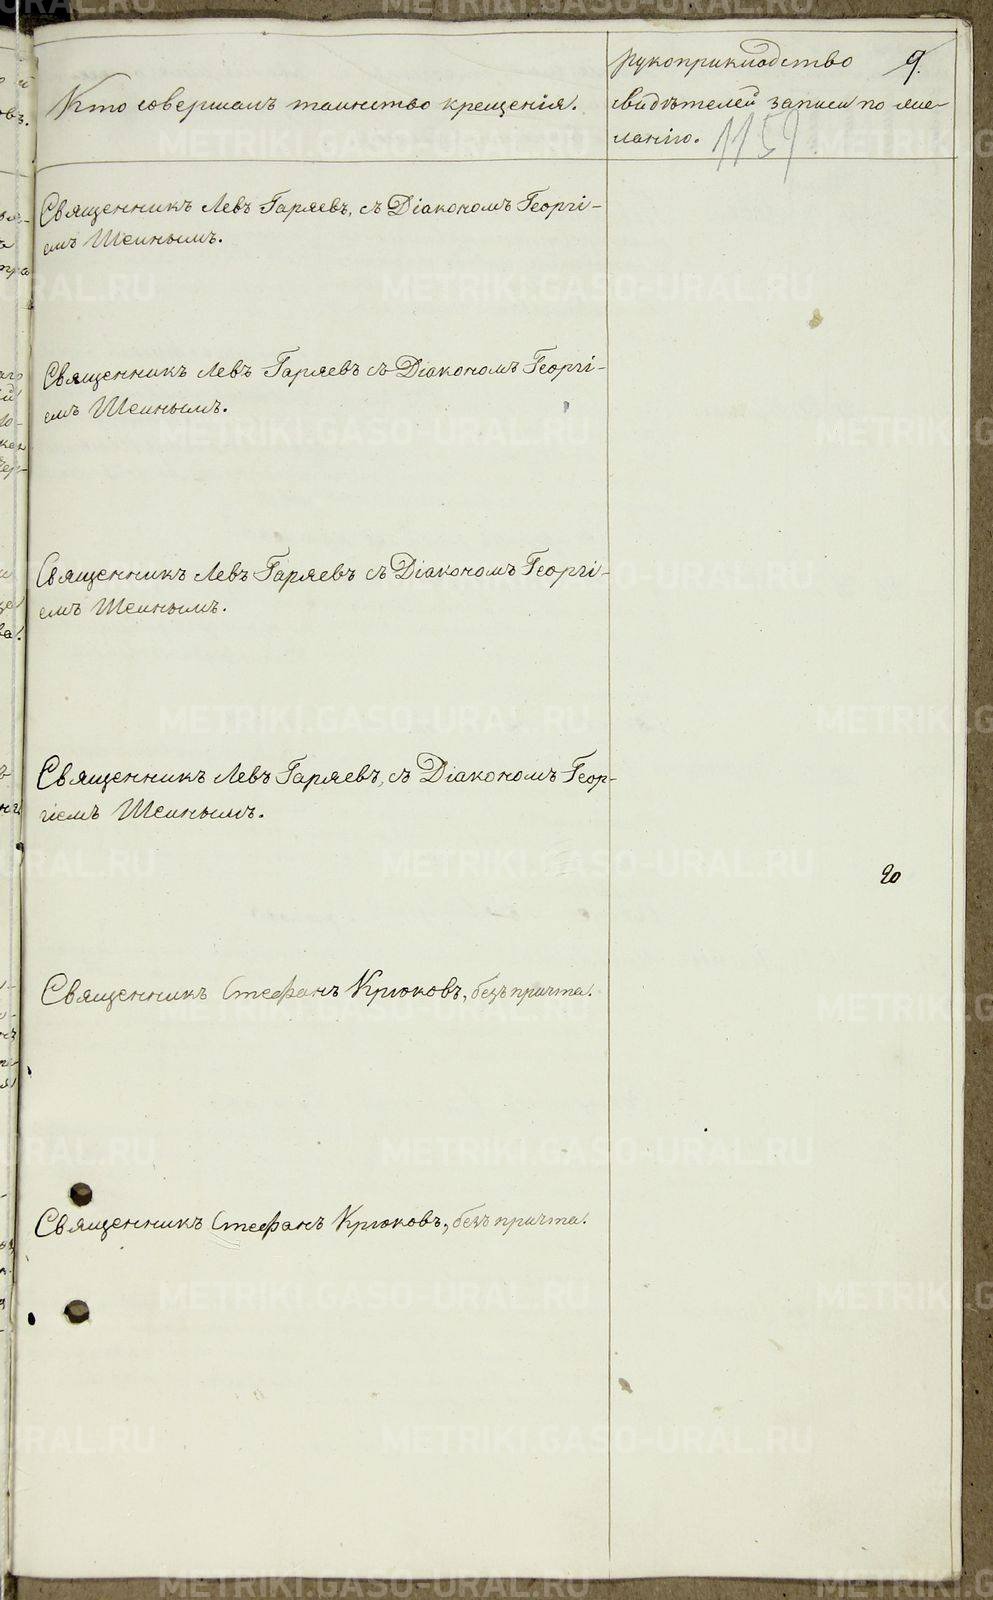 Кто совершалъ таинство крещенія.
Рукоприкладство
свидѣтелей записи по же-
ланію.
9.
1159
Священникъ Левъ Гаряевъ, съ Діакономъ Георгі-
емъ Шеинымъ.
Священникъ Левъ Гаряевъ съ Діакономъ Георгі-
емъ Шеинымъ.
Священникъ Левъ Гаряевъ съ Діакономъ Георгі-
емъ Шеинымъ.
Священникъ Левъ Гаряевъ, съ Діакономъ Геор-
гіемъ Шеинымъ.
20
Священникъ Стефанъ Крюковъ, безъ причта.
Священникъ Стефанъ Крюковъ, безъ причта.
METRIKI.GASO-URAL.RU